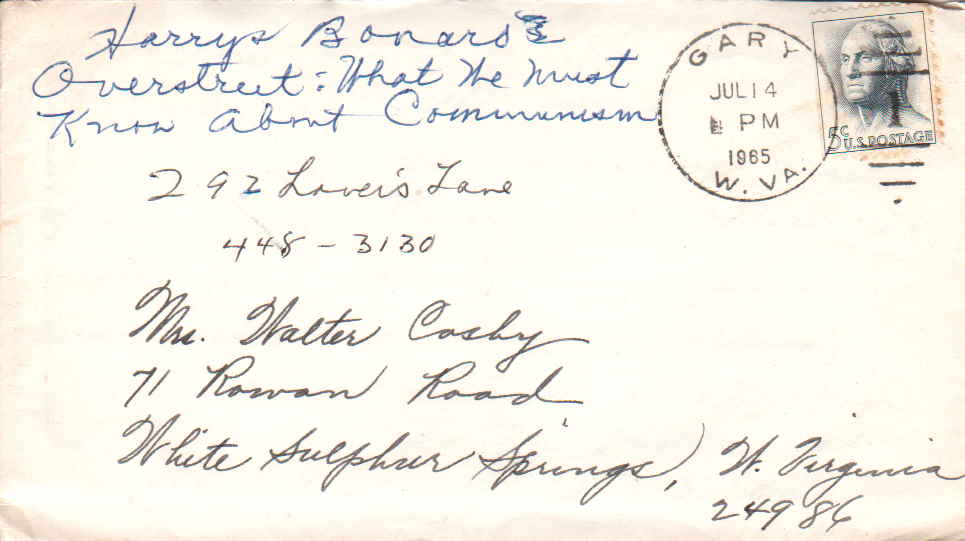 Harrys Bonaro
Overstreet: What We Must
Know About Communism
292 Lover's Lane
448-3130
GARY
JUL 14
PM
1965
W. VA.
5c U.S. POSTAGE
Mr. Walter Cosby
71 Rowan Road
White Sulphur Springs, W. Virginia
24986